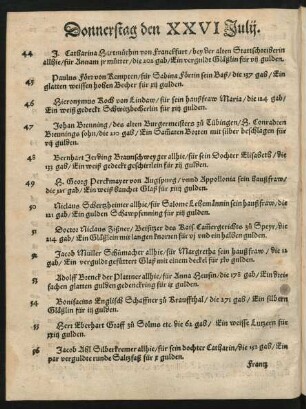 Donnerstag den XXVI Julij.
44 J. Catharina Hartmänin von Franckfurt / bey der alten Stattschreiberin
allhie / für Annam jr mütter / die 202 gab / Ein vergulde Gläßlin für vij gulden.
45 Paulus Föri von Kempten / für Sabina Förin sein Baß / die 137 gab / Ein
glatten weissen hohen Becher für xij gulden
46 Hieronymus Roth von Lindaw / für sein haußfraw Maria / die 114 gab /
Ein weiß gedeckt Schwitzbecherlin für xij gulden.
47 Johan Brenning / des alten Burgermeisters zu Tübingen / H. Conradten
Brennings sohn / die 17 gab / Ein Daffaten Bareten mit silber beschlagen für
vj gulden
48 Bernhart Jerding Braunschweyger allhie / für sein Dochter Elisabeth / die
131 gab / Ein weiß gedeckt geschirrlin für x gulden.
49 H. Georg Perckmayr von Augspurg / vnnd Appollonia sein haußfraw /
die 211 gab / Ein weiß Glatt Glaß für xiij gulden.
50 Niclaus Scherzheimer allhie / für Salome sein haußfraw / die
122 gab / Ein gulden Schawpfenning für xij gulden
51 Doctor Niclaus Zißner / Beisitzer des Keis. Camergerichts zu Speyr / die
214 gab / Ein Gläßlein mit langen knorren für vj vnd ein halben gulden
52 Jacob Müller Schümacher allhie / für Margretha sein haußfraw / die 12
gab / Ein vergulde gestürrtz Glaß mit einem deckel für xv gulden.
53 Adolf Boeck der Plattner allhie / für Anna Heusin / die 178 gab / Ein
fachen glatten gulden gedenckring für ij gulden
54 Bonifacius Englisch Schaffner zu Trauthal / die 271 gab / Ein silbern
Gläßlin für iij gulden
55 Herr Eberhart Graff zu Solms etc die 62 gab / Ein weisse Lutzern für
xxij gulden.
56 Jacob Aßl Silberkremer allhie / für sein dochter Catharin / die 131 gab / Ein
par verguldte runde Saltzfaß für x gulden.
Frantz